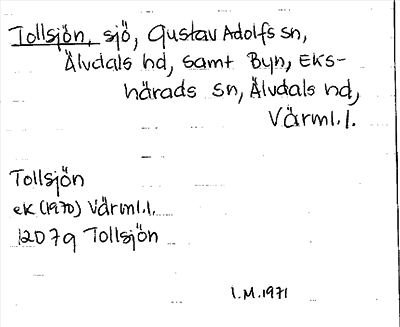 Tollsjön, sjö, Gustav Adolfs sn,
Älvdals hd, samt Byn, Eks-
härads sn, Älvdals hd,
Värml.l.
Tollsjön
ek (1970) Värml.l.
12D7g Tollsjön
I.M.1971